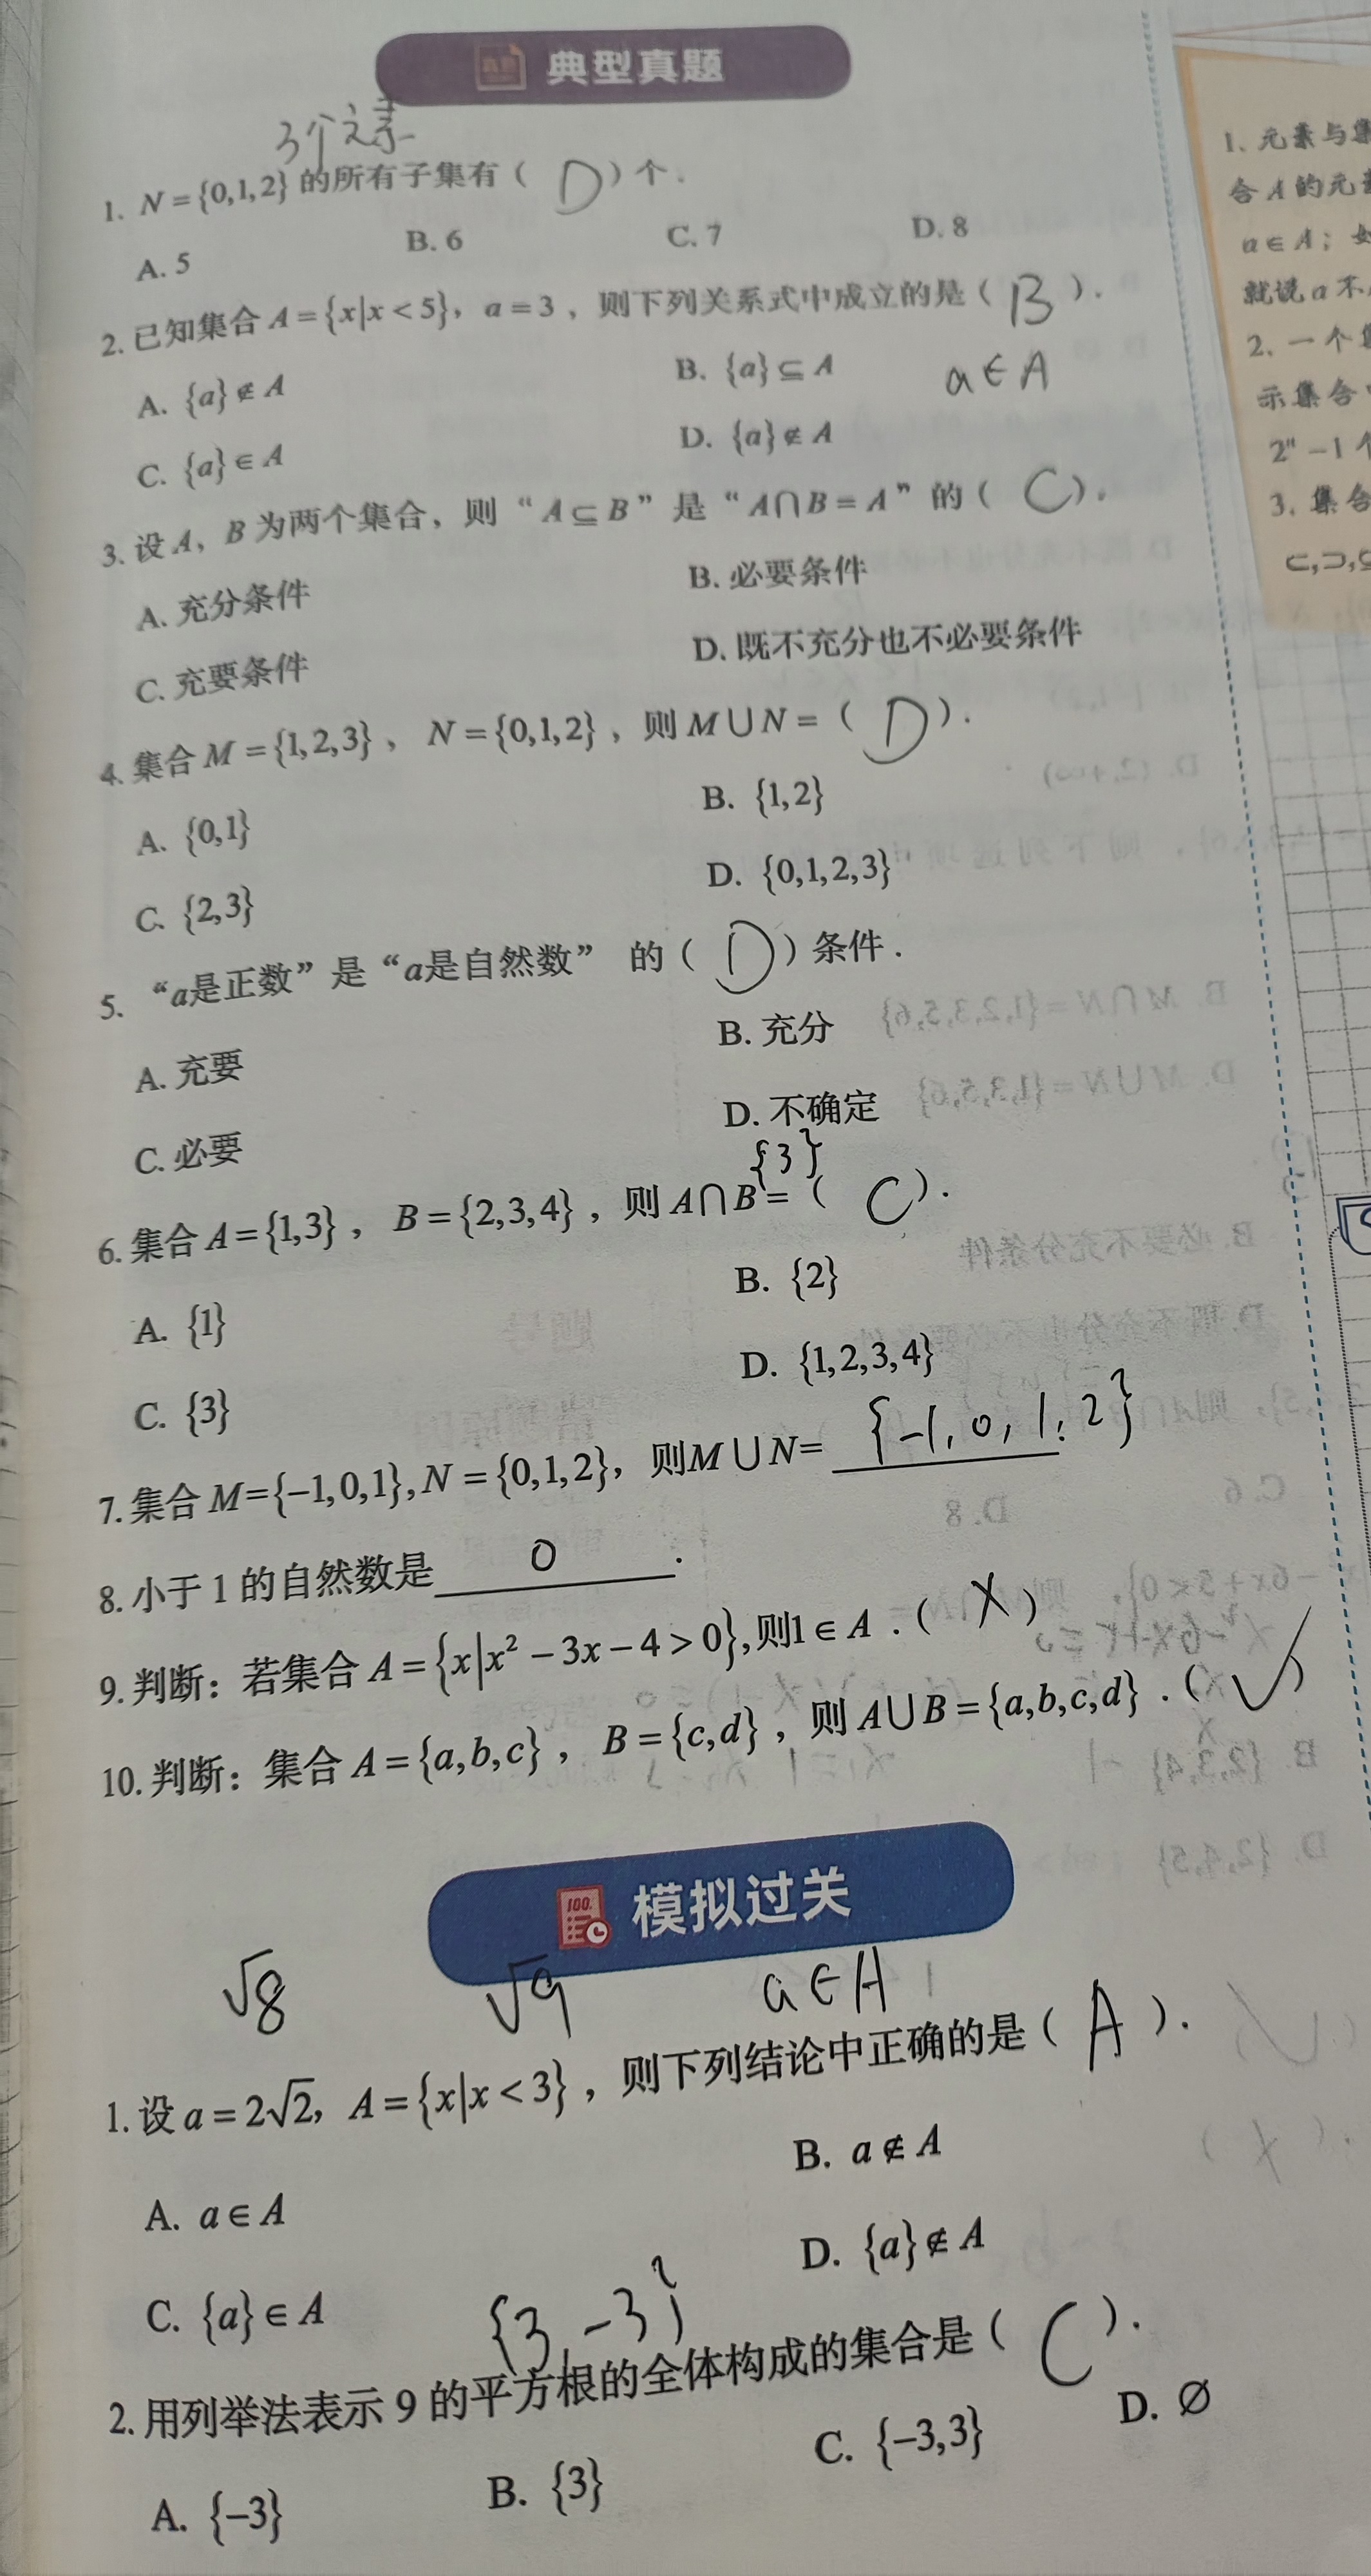 典型真题
3个元素
1. N={0,1,2} 的所有子集有（ D ）个.
A. 5 B. 6 C. 7 D. 8
2. 已知集合 A={x|x<5}，a=3，则下列关系式中成立的是（ B ）.
A. {a}∉A B. {a}⊆A a∈A
C. {a}∈A D. {a}∉A
3. 设 A，B 为两个集合，则“A⊆B”是“A∩B=A”的（ C ）.
A. 充分条件 B. 必要条件
C. 充要条件 D. 既不充分也不必要条件
4. 集合 M={1,2,3}，N={0,1,2}，则 M∪N=（ D ）.
A. {0,1} B. {1,2}
C. {2,3} D. {0,1,2,3}
5. “a是正数”是“a是自然数”的（ D ）条件.
A. 充要 B. 充分
C. 必要 D. 不确定
{3}
6. 集合 A={1,3}，B={2,3,4}，则 A∩B=（ C ）.
A. {1} B. {2}
C. {3} D. {1,2,3,4}
7. 集合 M={−1,0,1},N={0,1,2}，则M∪N= {−1,0,1,2}
8. 小于 1 的自然数是 0 .
9. 判断：若集合 A={x|x²−3x−4>0},则1∈A .（ X ）
10. 判断：集合 A={a,b,c}，B={c,d}，则 A∪B={a,b,c,d} .（ √ ）
模拟过关
√8 √9 a∈A
1. 设 a=2√2, A={x|x<3}，则下列结论中正确的是（ A ）.
A. a∈A B. a∉A
C. {a}∈A D. {a}∉A
{3,−3}
2. 用列举法表示 9 的平方根的全体构成的集合是（ C ）.
A. {−3} B. {3} C. {−3,3} D. ∅
1. 元素与集
合 A 的元素
a∈A；如
就说 a 不
2. 一个
示集合
2ⁿ−1个
3. 集合
⊂,⊃,